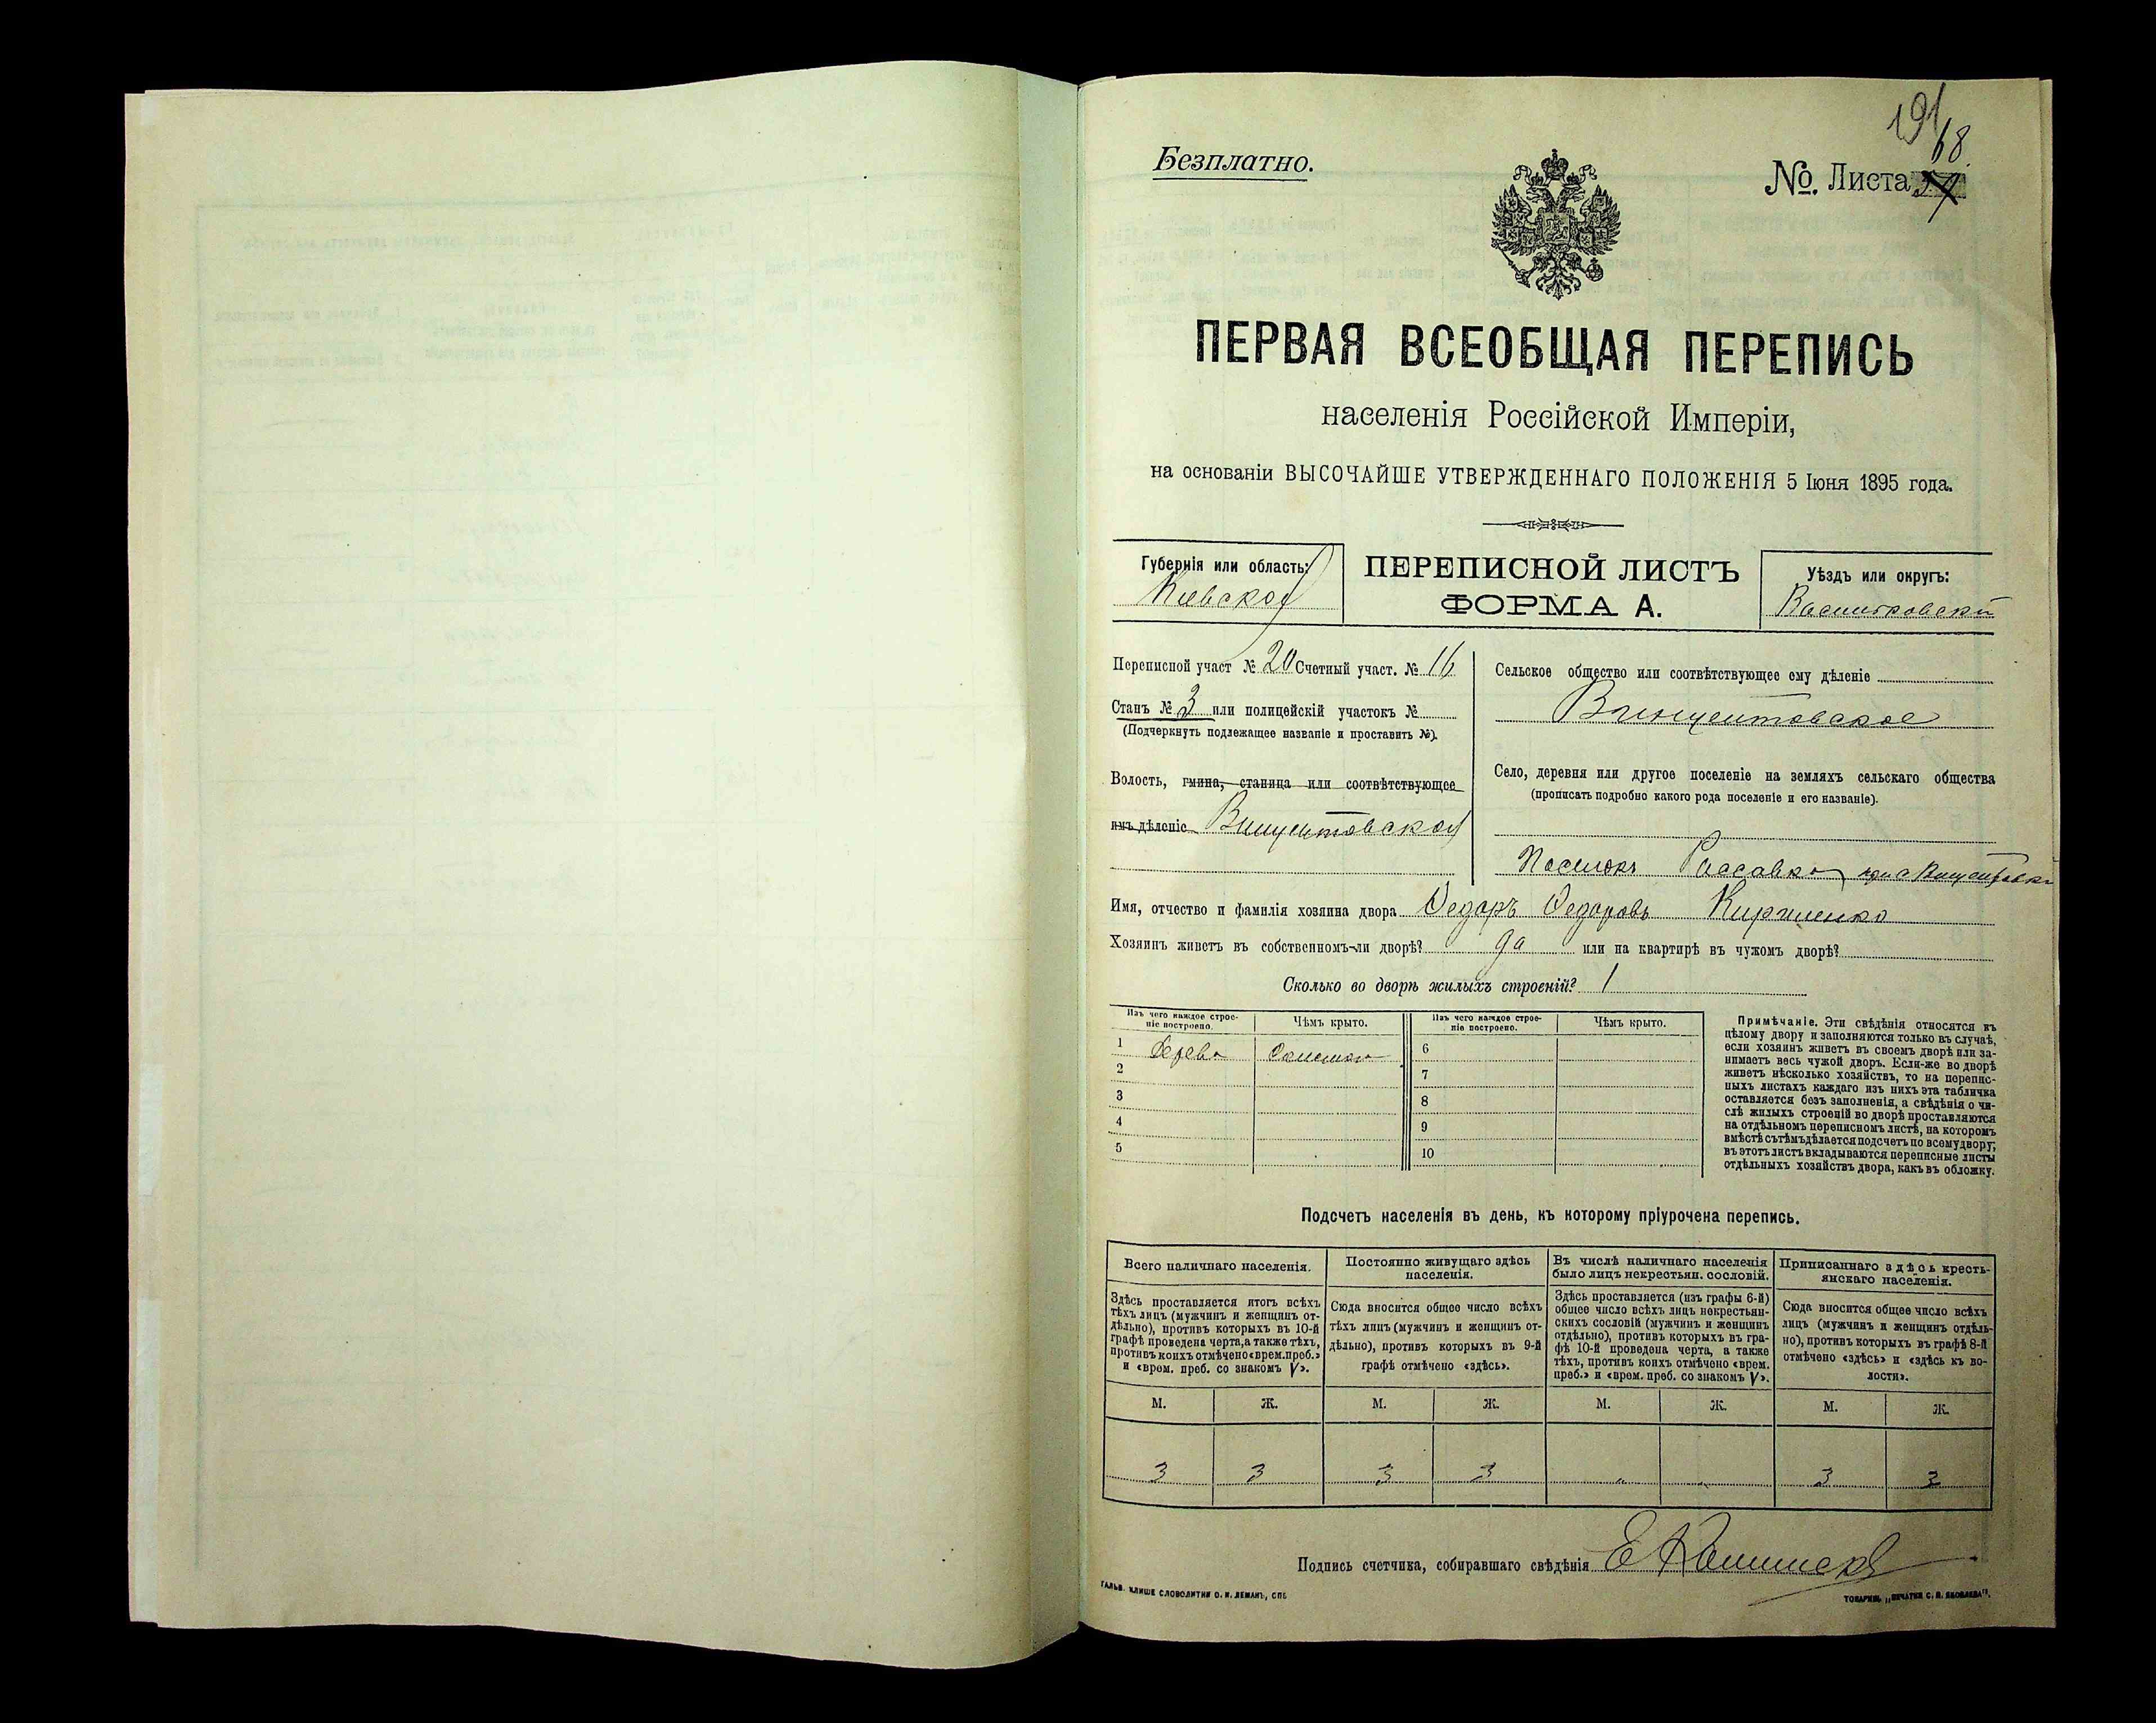 191
68
Безплатно.
№. Листа
ПЕРВАЯ ВСЕОБЩАЯ ПЕРЕПИСЬ
населенія Россійской Имперіи,
на основаніи ВЫСОЧАЙШЕ УТВЕРЖДЕННАГО ПОЛОЖЕНІЯ 5 Іюня 1895 года.
Губернія или область:
Кіевская
ПЕРЕПИСНОЙ ЛИСТЪ
ФОРМА А.
Уѣздъ или округъ:
Васильковскій
Переписной участ № 20 Счетный участ. № 16
Станъ № 3 или полицейскій участокъ №
(Подчеркнуть подлежащее названіе и проставить №).
Волость, гмина, станица или соотвѣтствующее
имъ дѣленіе Винцентовская
Сельское общество или соотвѣтствующее ему дѣленіе
Винцентовское
Село, деревня или другое поселеніе на земляхъ сельскаго общества
(прописать подробно какого рода поселеніе и его названіе).
Поселокъ Рассавка при с Винцентовкѣ
Имя, отчество и фамилія хозяина двора Федоръ Федоровъ Кириленко
Хозяинъ живетъ въ собственномъ-ли дворѣ? да или на квартирѣ въ чужомъ дворѣ?
Сколько во дворѣ жилыхъ строеній? 1
Изъ чего каждое строе-
ніе построено.
Чѣмъ крыто.
Изъ чего каждое строе-
ніе построено.
Чѣмъ крыто.
1 Дерева Соломою
2
3
4
5
6
7
8
9
10
Примѣчаніе. Эти свѣдѣнія относятся къ
цѣлому двору и заполняются только въ случаѣ,
если хозяинъ живетъ въ своемъ дворѣ или за-
нимаетъ весь чужой дворъ. Если-же во дворѣ
живетъ нѣсколько хозяйствъ, то на перепис-
ныхъ листахъ каждаго изъ нихъ эта табличка
оставляется безъ заполненія, а свѣдѣнія о чи-
слѣ жилыхъ строеній во дворѣ проставляются
на отдѣльномъ переписномъ листѣ, на которомъ
вмѣстѣ съ тѣмъ дѣлается подсчетъ по всему двору;
въ этотъ листъ вкладываются переписные листы
отдѣльныхъ хозяйствъ двора, какъ въ обложку.
Подсчетъ населенія въ день, къ которому пріурочена перепись.
Всего наличнаго населенія.
Здѣсь проставляется итогъ всѣхъ
тѣхъ лицъ (мужчинъ и женщинъ от-
дѣльно), противъ которыхъ въ 10-й
графѣ проведена черта, а также тѣхъ,
противъ коихъ отмѣчено «врем. преб.»
и «врем. преб. со знакомъ V».
Постоянно живущаго здѣсь
населенія.
Сюда вносится общее число всѣхъ
тѣхъ лицъ (мужчинъ и женщинъ от-
дѣльно), противъ которыхъ въ 9-й
графѣ отмѣчено «здѣсь».
Въ числѣ наличнаго населенія
было лицъ некрестьян. сословій.
Здѣсь проставляется (изъ графы 6-й)
общее число всѣхъ лицъ некрестьян-
скихъ сословій (мужчинъ и женщинъ
отдѣльно), противъ которыхъ въ гра-
фѣ 10-й проведена черта, а также
тѣхъ, противъ коихъ отмѣчено «врем.
преб.» и «врем. преб. со знакомъ V».
Приписаннаго здѣсь кресть-
янскаго населенія.
Сюда вносится общее число всѣхъ
лицъ (мужчинъ и женщинъ отдѣль-
но), противъ которыхъ въ графѣ 8-й
отмѣчено «здѣсь» и «здѣсь къ во-
лости».
М. Ж. М. Ж. М. Ж. М. Ж.
3 3 3 3 " " 3 3
Подпись счетчика, собиравшаго свѣдѣнія
ГАЛЬВ. КЛИШЕ СЛОВОЛИТНИ О. И. ЛЕМАНЪ, СПБ
ТОВАРИЩ. „ПЕЧАТНЯ С. П. ЯКОВЛЕВА".